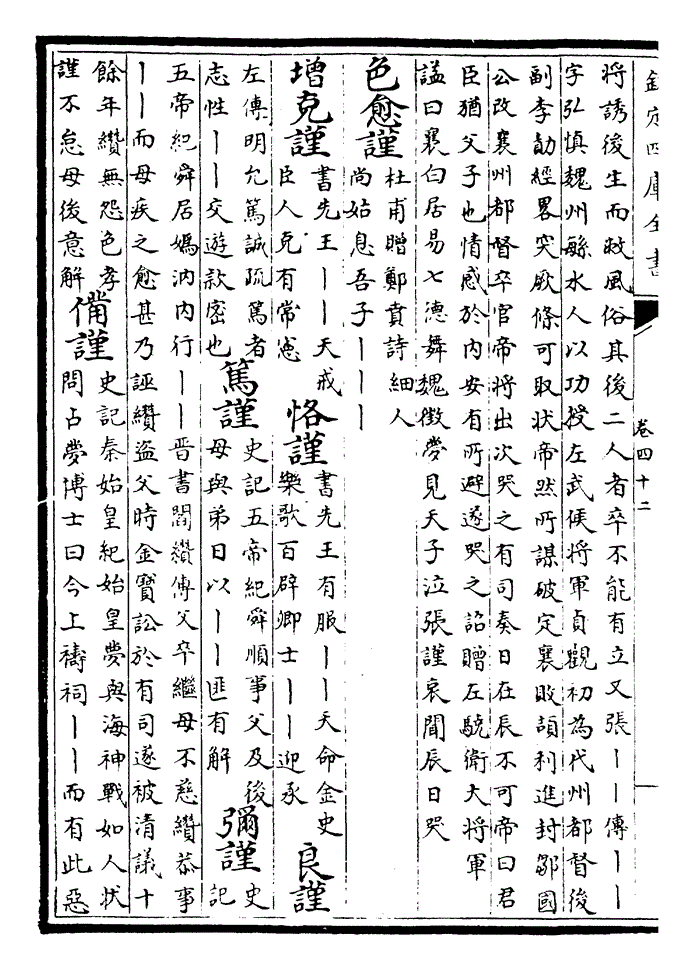 欽定四庫全書
卷四十二
將誘後生而敝風俗其後二人者卒不能有立又張丨丨傳丨丨
字弘慎魏州繁水人以功授左武候將軍貞觀初為代州都督後
副李勣經畧突厥條可取狀帝然所謀破定襄敗頡利進封鄒國
公改襄州都督卒官帝將出次哭之有司奏日在辰不可帝曰君
臣猶父子也情感於内安有所避遂哭之詔贈左驍衛大將軍
諡曰襄白居易七德舞魏徵夢見天子泣張謹哀聞辰日哭
色愈謹
杜甫贈鄭賁詩細人
尚姑息吾子丨丨丨
增克謹
書先王丨丨天戒
臣人克有常憲
恪謹
書先王有服丨丨天命金史
樂歌百辟卿士丨丨迎承
良謹
左傳明允篤誠疏篤者
志性丨丨交遊款密也
篤謹
史記五帝紀舜順事父及後
母與弟日以丨丨匪有解
彌謹
史
記
五帝紀舜居媯汭内行丨丨晉書閻纘傳父卒繼母不慈纘恭事
丨丨而母疾之愈甚乃誣纘盜父時金寶訟於有司遂被清議十
餘年纘無怨色孝
謹不怠母後意解
備謹
史記秦始皇紀始皇夢與海神戰如人狀
問占夢博士曰今上禱祠丨丨而有此惡